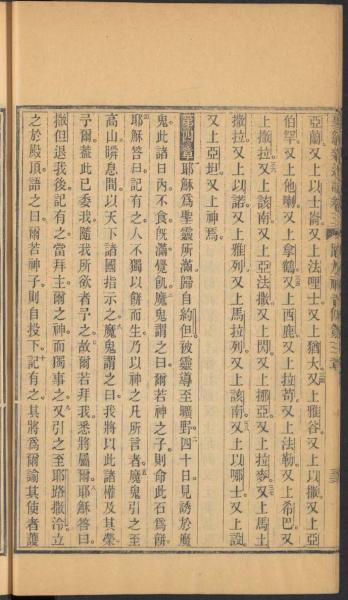 亞蘭又上以士崙又上法哩士又上猶大又上雅谷又上以撒又上亞
伯罕又上他喇又上拿鶴又上西鹿又上拉苟又上法勒又上希巴又
上撒拉又上該南又上亞法撒又上閃又上挪亞又上拉麥又上馬土
撒拉又上以諾又上雅列又上馬拉列又上該南又上以哪士又上設
又上亞坦又上神焉
第四章耶穌為聖靈所滿歸自約但被靈導至曠野四十日見誘於魔
鬼此諸日內不食旣滿覺飢魔鬼謂之曰爾若神之子則命此石為餅
耶穌答曰記有之人不獨以餅而生乃以神之凡所言者魔鬼引之至
高山瞬息間以天下諸國指示之魔鬼謂之曰我將以此諸權及其榮
予爾蓋此已委我隨我所欲者予之故爾若拜我悉將屬爾耶穌答曰
撒但退我後記有之當拜主爾之神而獨事之又引之至耶路撒冷立
之於殿頂語之曰爾若神子則自投下記有之其將為爾諭其使者護